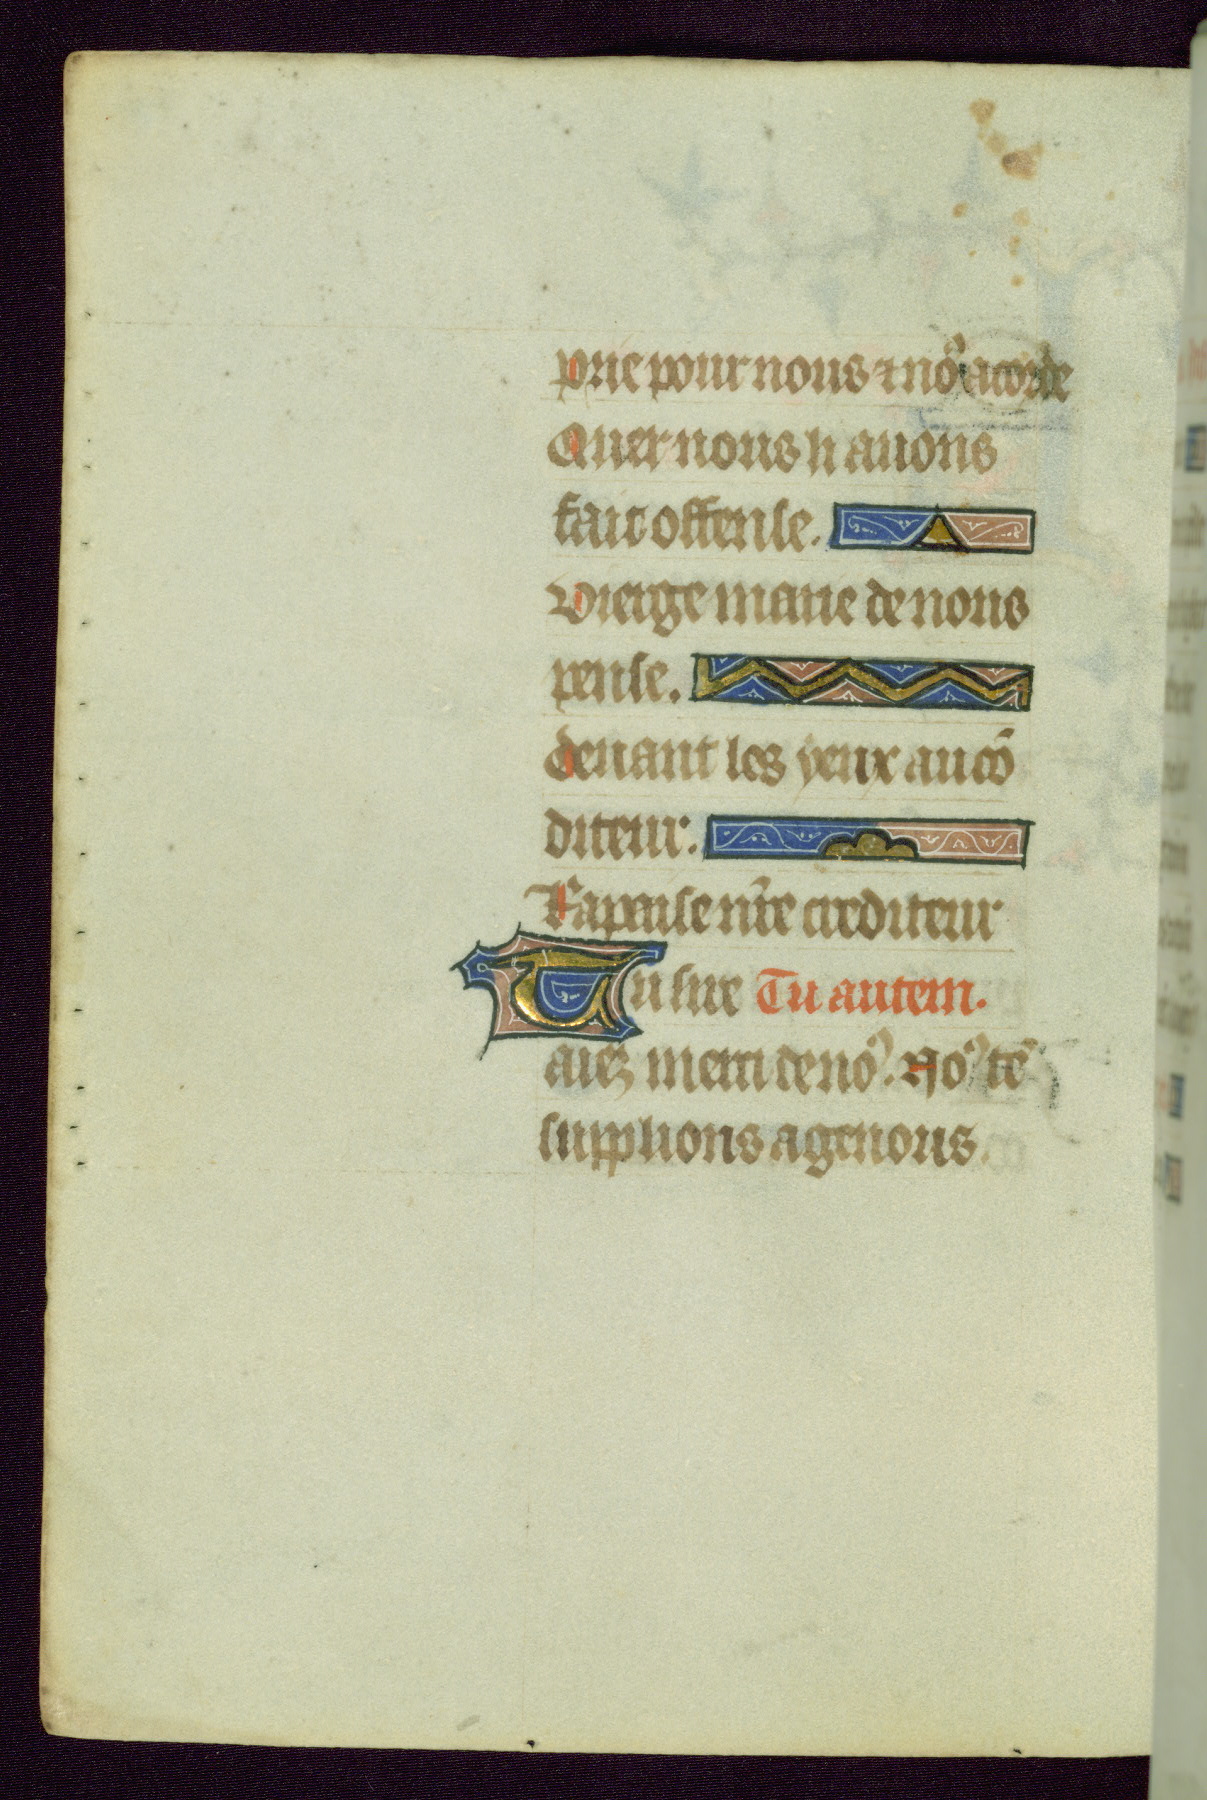 prie pour nous ⁊ nõ acorde
Quer nous li auons
fait offense.
vierge marie de nous
pense.
deuant les yeux au cõ
diteur.
Rapaise nr̃e crediteur
Tu sire Tu autem.
aiez merci de no᷒. No᷒ te
supplions a genous.